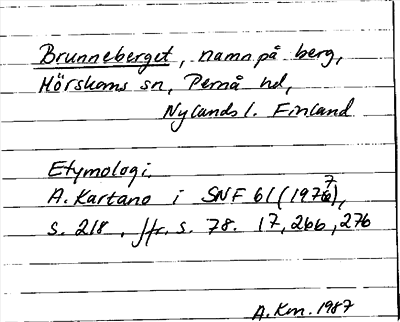 Brunneberget, namn på berg,
Hörskams sn, Pernå hd,
Nylands l. Finland
Etymologi.
A. Kartano i SNF 61 (1977),
s. 218. Jfr. s. 78. 17, 266, 276
A.Km. 1987